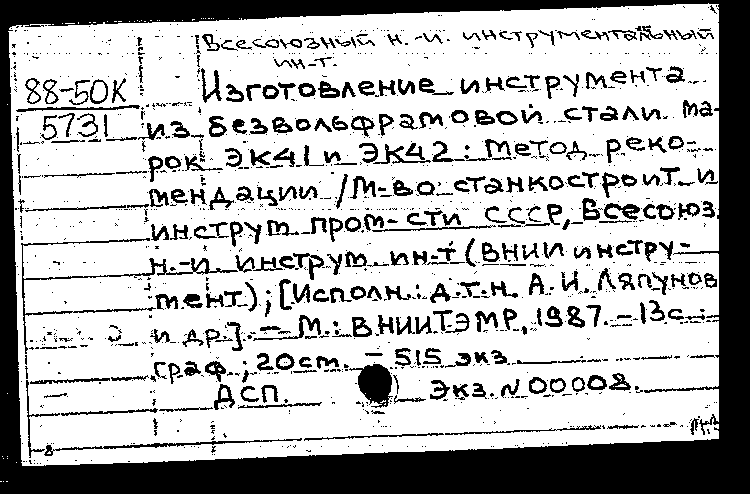 Всесоюзный н.-и. инструментальный
ин-т.
88-50К
5731
Изготовление инструмента
из безвольфрамовой стали ма-
рок ЭК41 и ЭК42: Метод. реко-
мендации / М-во станкостроит. и
инструм. пром-сти СССР, Всесоюз.
н.-и. инструм. ин-т (ВНИИинстру-
мент); [Исполн.: д.т.н. А. И. Ляпунов
и др]. — М.: ВНИИТЭМР, 1987. — 13 с.:
граф.; 20 см. — 515 экз.
ДСП. Экз. N 00008.